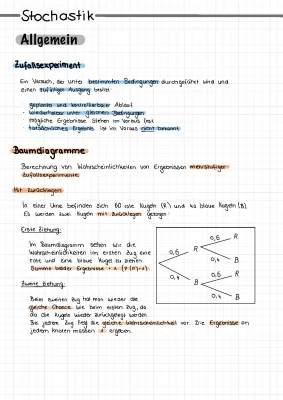 Stochastik
Allgemein
Zufallsexperiment
Ein Versuch, der unter bestimmten Bedingungen durchgeführt wird und
einen zufälligen Ausgang besitzt.
geplanter und kontrollierbarer Ablauf
wiederholbar unter gleichen Bedingungen
mögliche Ergebnisse stehen im Voraus fest
tatsächliches Ergebnis ist im Voraus nicht bekannt
Baumdiagramme
Berechnung von Wahrscheinlichkeiten von Ergebnissen mehrstufiger
Zufallsexperimente
Mit Zurücklegen
In einer Urne befinden sich 60 rote Kugeln (R) und 40 blaue Kugeln (B).
Es werden zwei Kugeln mit Zurücklegen gezogen.
Erste Ziehung:
Im Baumdiagramm sehen wir die
Wahrscheinlichkeiten im ersten Zug eine
rote und eine blaue Kugel zu ziehen.
Summe beider Ergebnisse = 1
Zweite Ziehung:
Beim zweiten Zug hat man wieder die
gleiche Chance wie beim ersten Zug, da
die Kugeln wieder zurückgelegt werden.
Bei jedem Zug liegt die gleiche Wahrscheinlichkeit vor. Die Ergebnisse an
jedem Knoten müssen 1 ergeben.
0,6 R
0,6 R
0,4 B
0,4 B
0,6 R
0,4 B